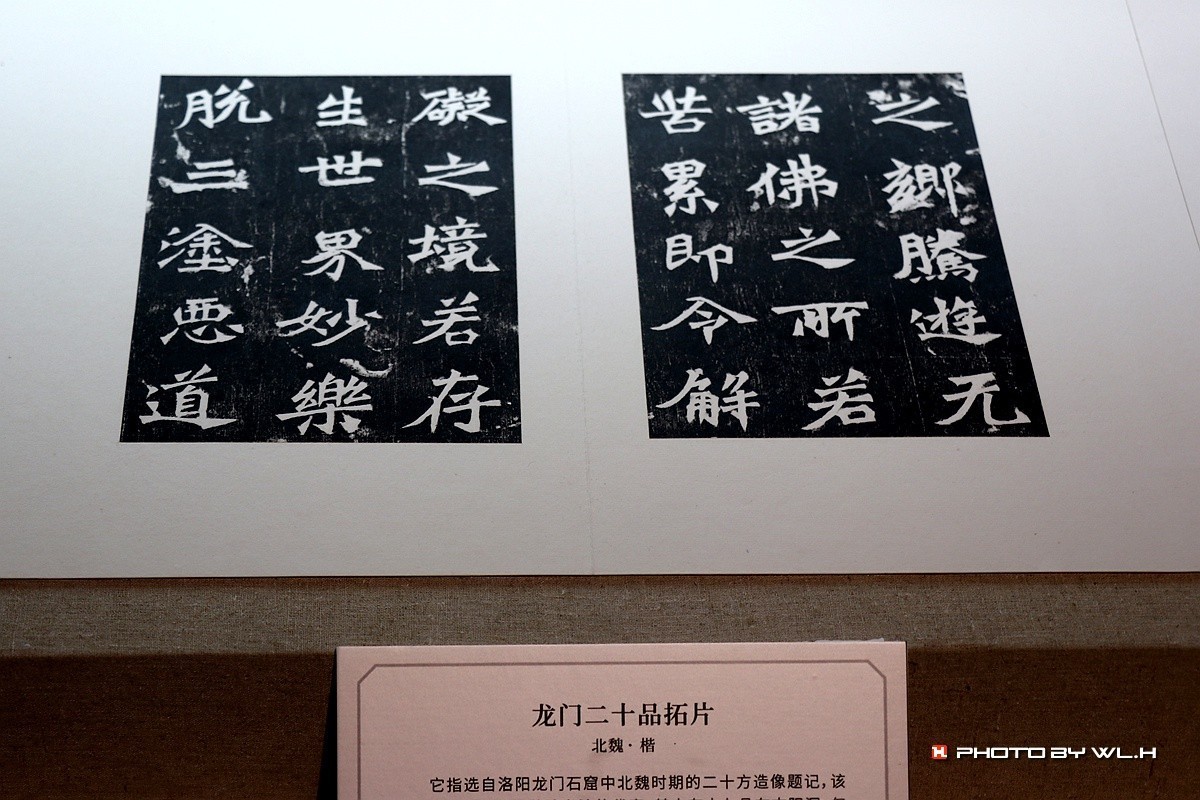 之鄉騰遊无
諸佛之所若
苦累即令解
礙之境若存
生世界妙樂
脱三塗悪道
龙门二十品拓片
北魏·楷
它指选自洛阳龙门石窟中北魏时期的二十方造像题记，该
PHOTO BY WL.H